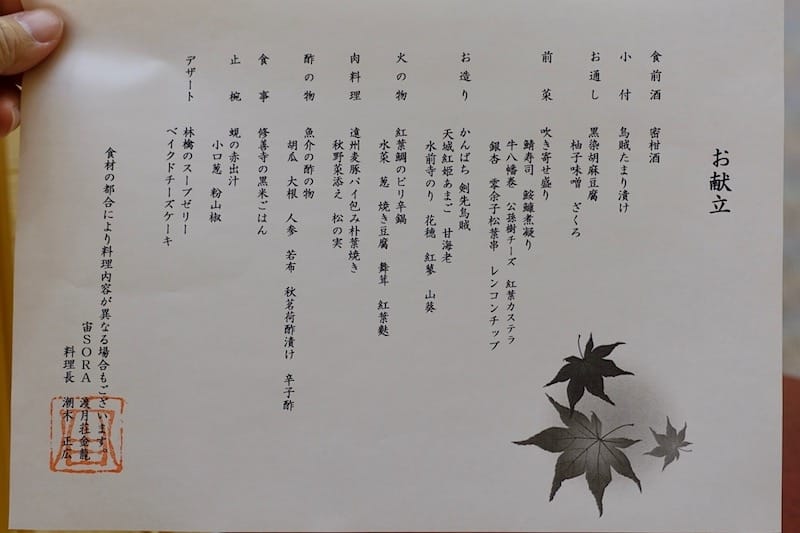 お献立
食前酒　密柑酒
小付　烏賊たまり漬け
お通し　黒染胡麻豆腐
柚子味噌　ざくろ
前菜　吹き寄せ盛り
鯖寿司　鮟鱇煮凝り
牛八幡巻　公孫樹チーズ　紅葉カステラ
銀杏　零余子松葉串　レンコンチップ
お造り　かんぱち　剣先烏賊
天城紅姫あまご　甘海老
水前寺のり　花穂　紅蓼　山葵
火の物　紅葉鯛のピリ辛鍋
水菜　葱　焼き豆腐　舞茸　紅葉麩
肉料理　遠州麦豚パイ包み朴葉焼き
秋野菜添え　松の実
酢の物　魚介の酢の物
胡瓜　大根　人参　若布　秋茗荷酢漬け　辛子酢
食事　修善寺の黒米ごはん
止椀　蜆の赤出汁
小口葱　粉山椒
デザート　林檎のスープゼリー
ベイクドチーズケーキ
食材の都合により料理内容が異なる場合もございます。
宙ＳＯＲＡ　渡月荘金龍
料理長　潮木　正広